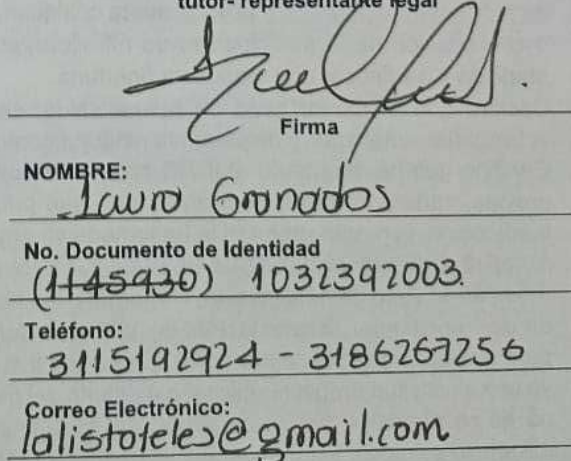 tutor- representante legal
Firma
NOMBRE:
Laura Granados
No. Documento de Identidad
(1145930) 1032392003.
Teléfono:
3115192924 - 3186267256
Correo Electrónico:
lalistoteles@gmail.com